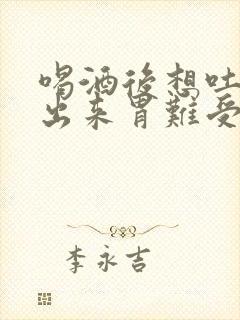 喝酒後想吐
出来胃難受
李永吉